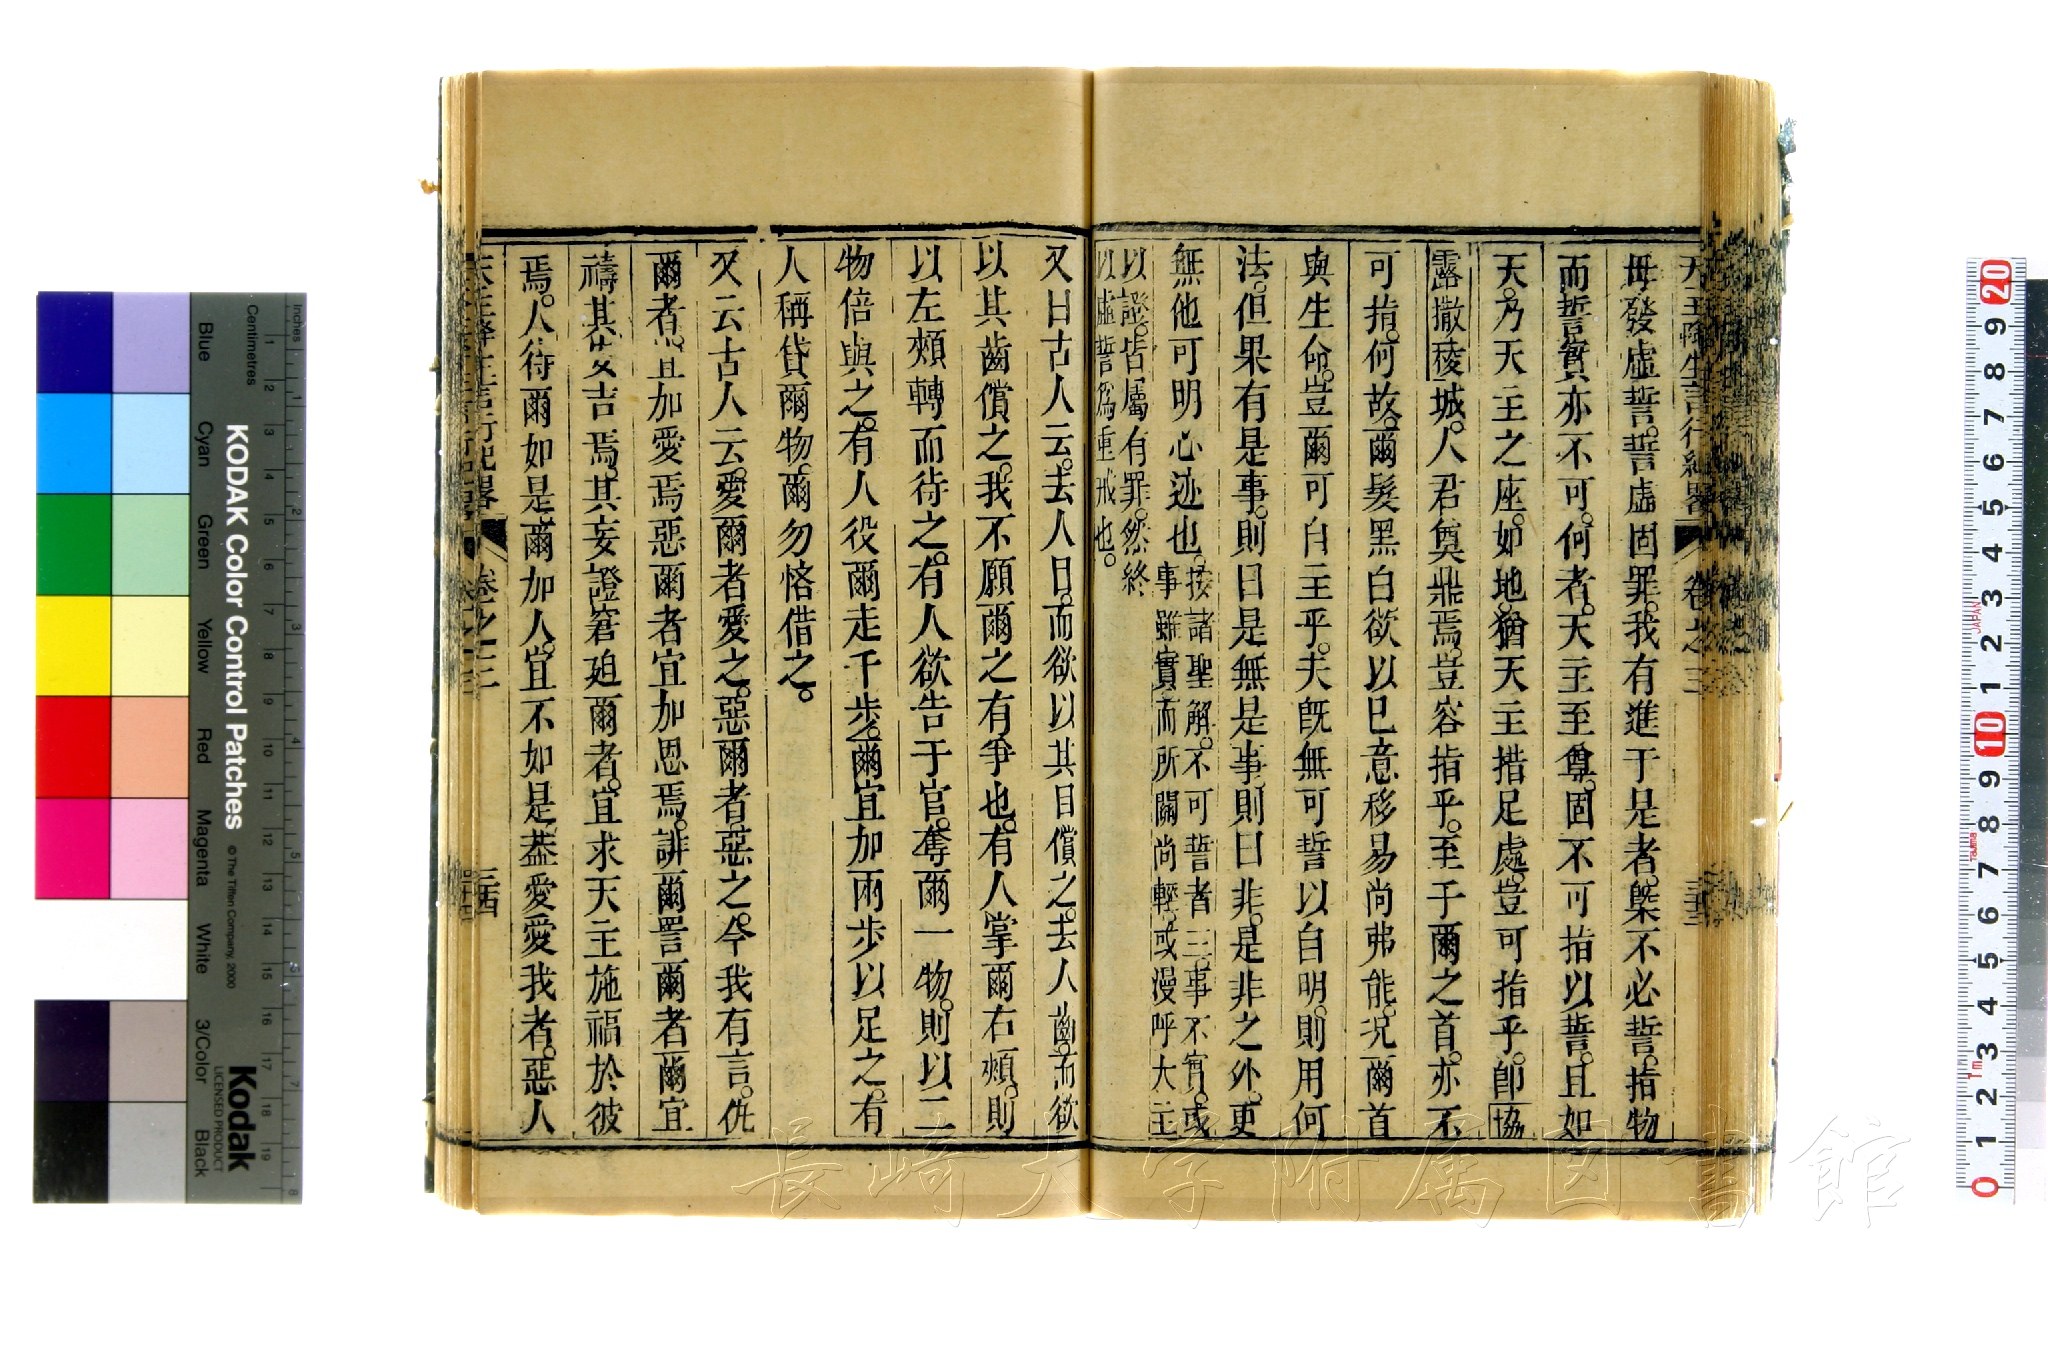 天主降生言行紀畧 卷之三 三十三
毋發虛誓。誓虛固罪。我有進于是者。槩不必誓。指物
而誓實亦不可。何者。天主至尊。固不可指以誓。且如
天。乃天主之座。如地。猶天主措足處。豈可指乎。卽協
露撒稜城。人君奠鼎焉。豈容指乎。至于爾之首。亦不
可指。何故。爾髮黑白欲以已意移易尚弗能。况爾首
與生命。豈爾可自主乎。夫旣無可誓以自明。則用何
法。但果有是事。則曰是無是事。則曰非。是非之外。更
無他可明心迹也。按諸聖解。不可誓者三。事不實。或
事雖實而所關尚輕。或漫呼大主
以證。皆屬有罪。然終
以虛誓爲重戒也。
又曰古人云。去人目。而欲以其目償之。去人齒。而欲
以其齒償之。我不願爾之有爭也。有人掌爾右頰。則
以左頰轉而待之。有人欲告于官。奪爾一物。則以二
物倍與之。有人役爾走千步。爾宜加兩步以足之。有
人稱貸爾物。爾勿悋借之。
又云古人云。愛爾者愛之。惡爾者惡之。今我有言。仇
爾者。宜加愛焉惡爾者宜加恩焉。誹爾詈爾者爾宜
禱其安吉焉。其妄證窘廹爾者。宜求天主施福於彼
焉。人待爾如是。爾加人。宜不如是。葢愛愛我者。惡人
天主降生言行紀畧 卷之三 三十四
KODAK Color Control Patches
© The Tiffen Company, 2000
Kodak
LICENSED PRODUCT
Inches
Centimetres
Blue Cyan Green Yellow Red Magenta White 3/Color Black
長崎大学附属図書館
JAPAN